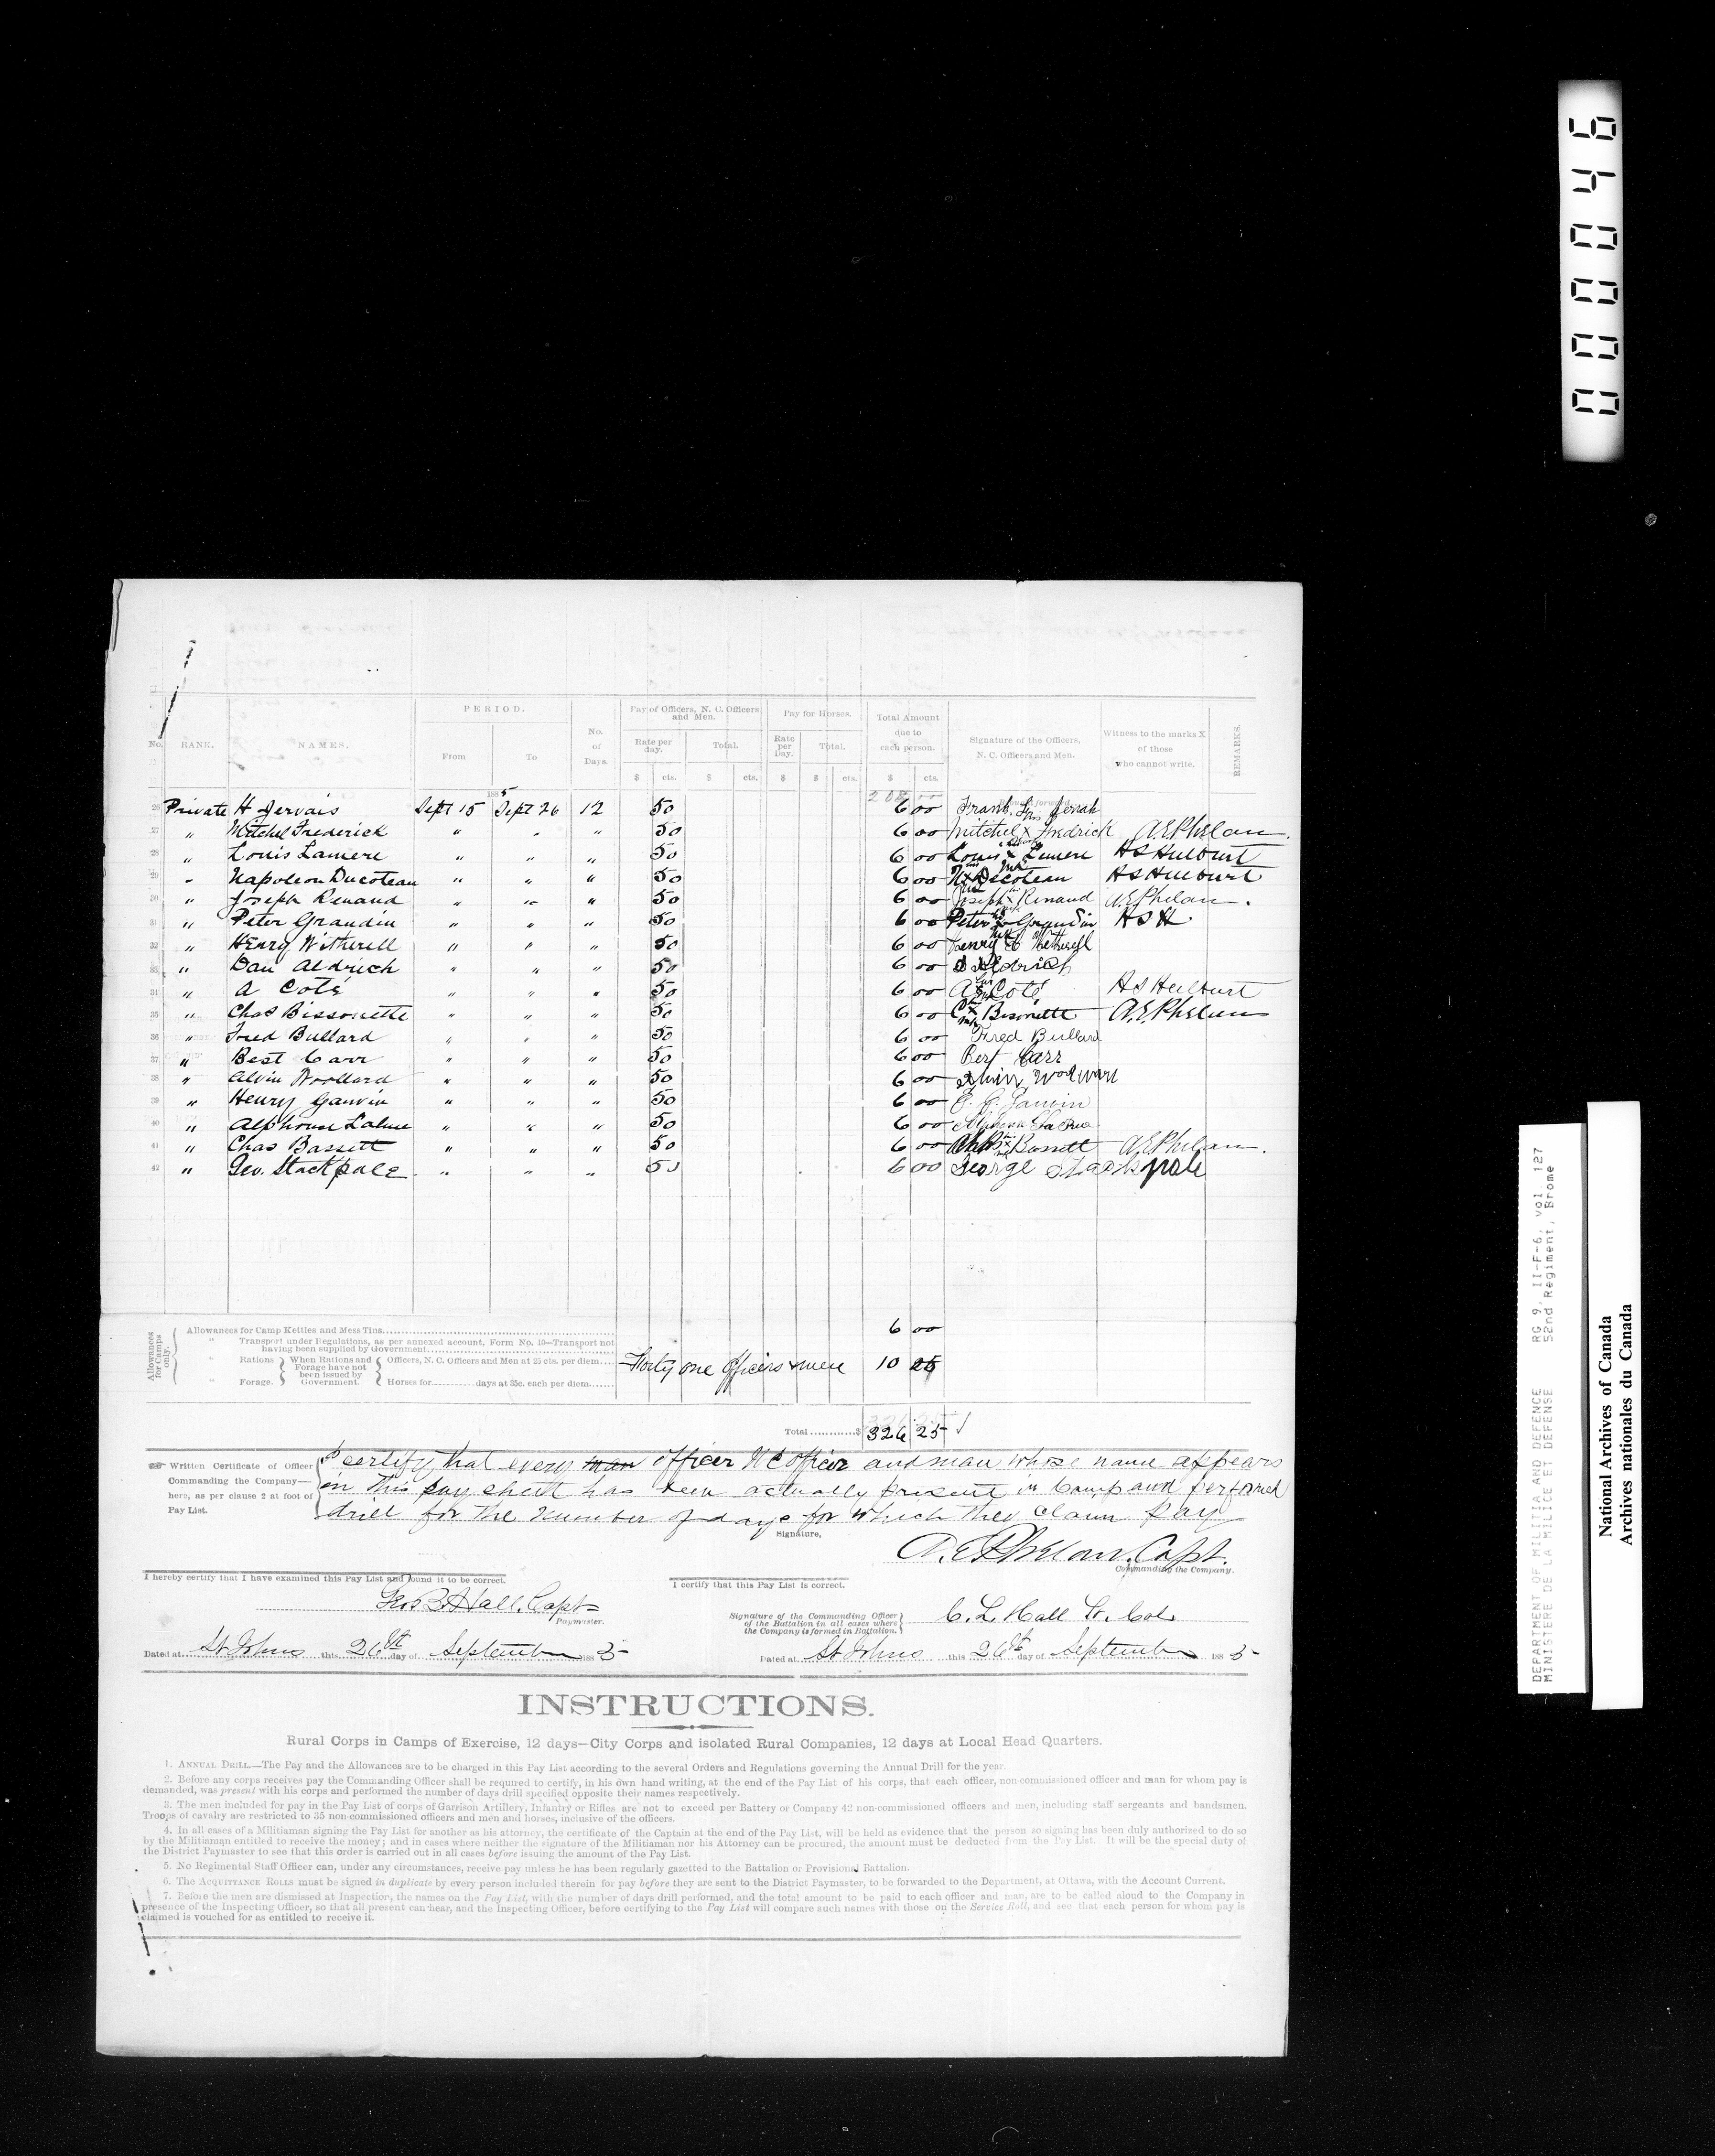 000046
PERIOD.
Pay of Officers, N. C. Officers and Men.
Pay for Horses.
Total Amount due to each person.
No.
RANK.
NAMES.
From
To
No. of Days.
Rate per day.
Total.
Rate per Day.
Total.
Signature of the Officers, N. C. Officers and Men.
Witness to the marks X of those who cannot write.
REMARKS.
$ cts. $ cts. $ $ cts. $ cts.
1885
26 Private H Gervais Sept 15 Sept 26 12 50 6 00 Frank
27 " Mitchel Frederick " " " 50 6 00 Mitchel X Fredrick A.E.Phelan
28 " Louis Lamere " " " 50 6 00 Louis X Lamere H S Hulburt
29 " Napoleon Ducoteau " " " 50 6 00 N X Decoteau H S Hulburt
30 " Joseph Renaud " " " 50 6 00 Joseph X Renaud A.E.Phelan.
31 " Peter Grandin " " " 50 6 00 Peter X Grandin H S H.
32 " Henry Witherell " " " 50 6 00 Henry
33 " Dan Aldrich " " " 50 6 00 D Aldrich
34 " A Coté " " " 50 6 00 A X Coté H S Hulburt
35 " Chas Bissonette " " " 50 6 00 C X Bisonette A.E.Phelan
36 " Fred Bullard " " " 50 6 00 Fred Bullard
37 " Bert Carr " " " 50 6 00 Bert Carr
38 " Alvin Woollard " " " 50 6 00 Alvin
39 " Henry Gauvin " " " 50 6 00 Gauvin
40 " Alphonse Lalue " " " 50 6 00
41 " Chas Bassett " " " 50 6 00 Bassett A.E.Phelan.
42 " Geo. Stackpole " " " 50 6 00 George Stackpole
Allowances for Camps only.
Allowances for Camp Kettles and Mess Tins 6 00
" Transport under Regulations, as per annexed account, Form No. 10—Transport not having been supplied by Government
" Rations When Rations and Forage have not been issued by Government. Officers, N. C. Officers and Men at 25 cts. per diem Forty one officers & men 10 25
" Forage. Horses for days at 35c. each per diem
Total $ 326 25
Written Certificate of Officer Commanding the Company—here, as per clause 2 at foot of Pay List.
I certify that every man officer NC officer and man whose name appears
in this pay sheet has been actually present in Camp and performed
drill for the number of days for which they claim pay
Signature,
A.E.Phelan. Capt.
Commanding the Company.
I hereby certify that I have examined this Pay List and found it to be correct.
Geo. B. Hall. Capt
Paymaster.
I certify that this Pay List is correct.
Signature of the Commanding Officer of the Battalion in all cases where the Company is formed in Battalion.
C. L. Hall Lt. Col.
Dated at St Johns this 26th day of September 1885
Dated at St Johns this 26th day of September 1885
INSTRUCTIONS.
Rural Corps in Camps of Exercise, 12 days—City Corps and isolated Rural Companies, 12 days at Local Head Quarters.
1. ANNUAL DRILL.—The Pay and the Allowances are to be charged in this Pay List according to the several Orders and Regulations governing the Annual Drill for the year.
2. Before any corps receives pay the Commanding Officer shall be required to certify, in his own hand writing, at the end of the Pay List of his corps, that each officer, non-commissioned officer and man for whom pay is
demanded, was present with his corps and performed the number of days drill specified opposite their names respectively.
3. The men included for pay in the Pay List of corps of Garrison Artillery, Infantry or Rifles are not to exceed per Battery or Company 42 non-commissioned officers and men, including staff sergeants and bandsmen.
Troops of cavalry are restricted to 35 non-commissioned officers and men and horses, inclusive of the officers.
4. In all cases of a Militiaman signing the Pay List for another as his attorney, the certificate of the Captain at the end of the Pay List, will be held as evidence that the person so signing has been duly authorized to do so
by the Militiaman entitled to receive the money; and in cases where neither the signature of the Militiaman nor his Attorney can be procured, the amount must be deducted from the Pay List. It will be the special duty of
the District Paymaster to see that this order is carried out in all cases before issuing the amount of the Pay List.
5. No Regimental Staff Officer can, under any circumstances, receive pay unless he has been regularly gazetted to the Battalion or Provisional Battalion.
6. The ACQUITTANCE ROLLS must be signed in duplicate by every person included therein for pay before they are sent to the District Paymaster, to be forwarded to the Department, at Ottawa, with the Account Current.
7. Before the men are dismissed at Inspection, the names on the Pay List, with the number of days drill performed, and the total amount to be paid to each officer and man, are to be called aloud to the Company in
presence of the Inspecting Officer, so that all present can hear, and the Inspecting Officer, before certifying to the Pay List will compare such names with those on the Service Roll, and see that each person for whom pay is
claimed is vouched for as entitled to receive it.
DEPARTMENT OF MILITIA AND DEFENCE RG 9, II-F-6, vol. 127
MINISTERE DE LA MILICE ET DEFENSE 52nd Regiment, Brome
National Archives of Canada
Archives nationales du Canada